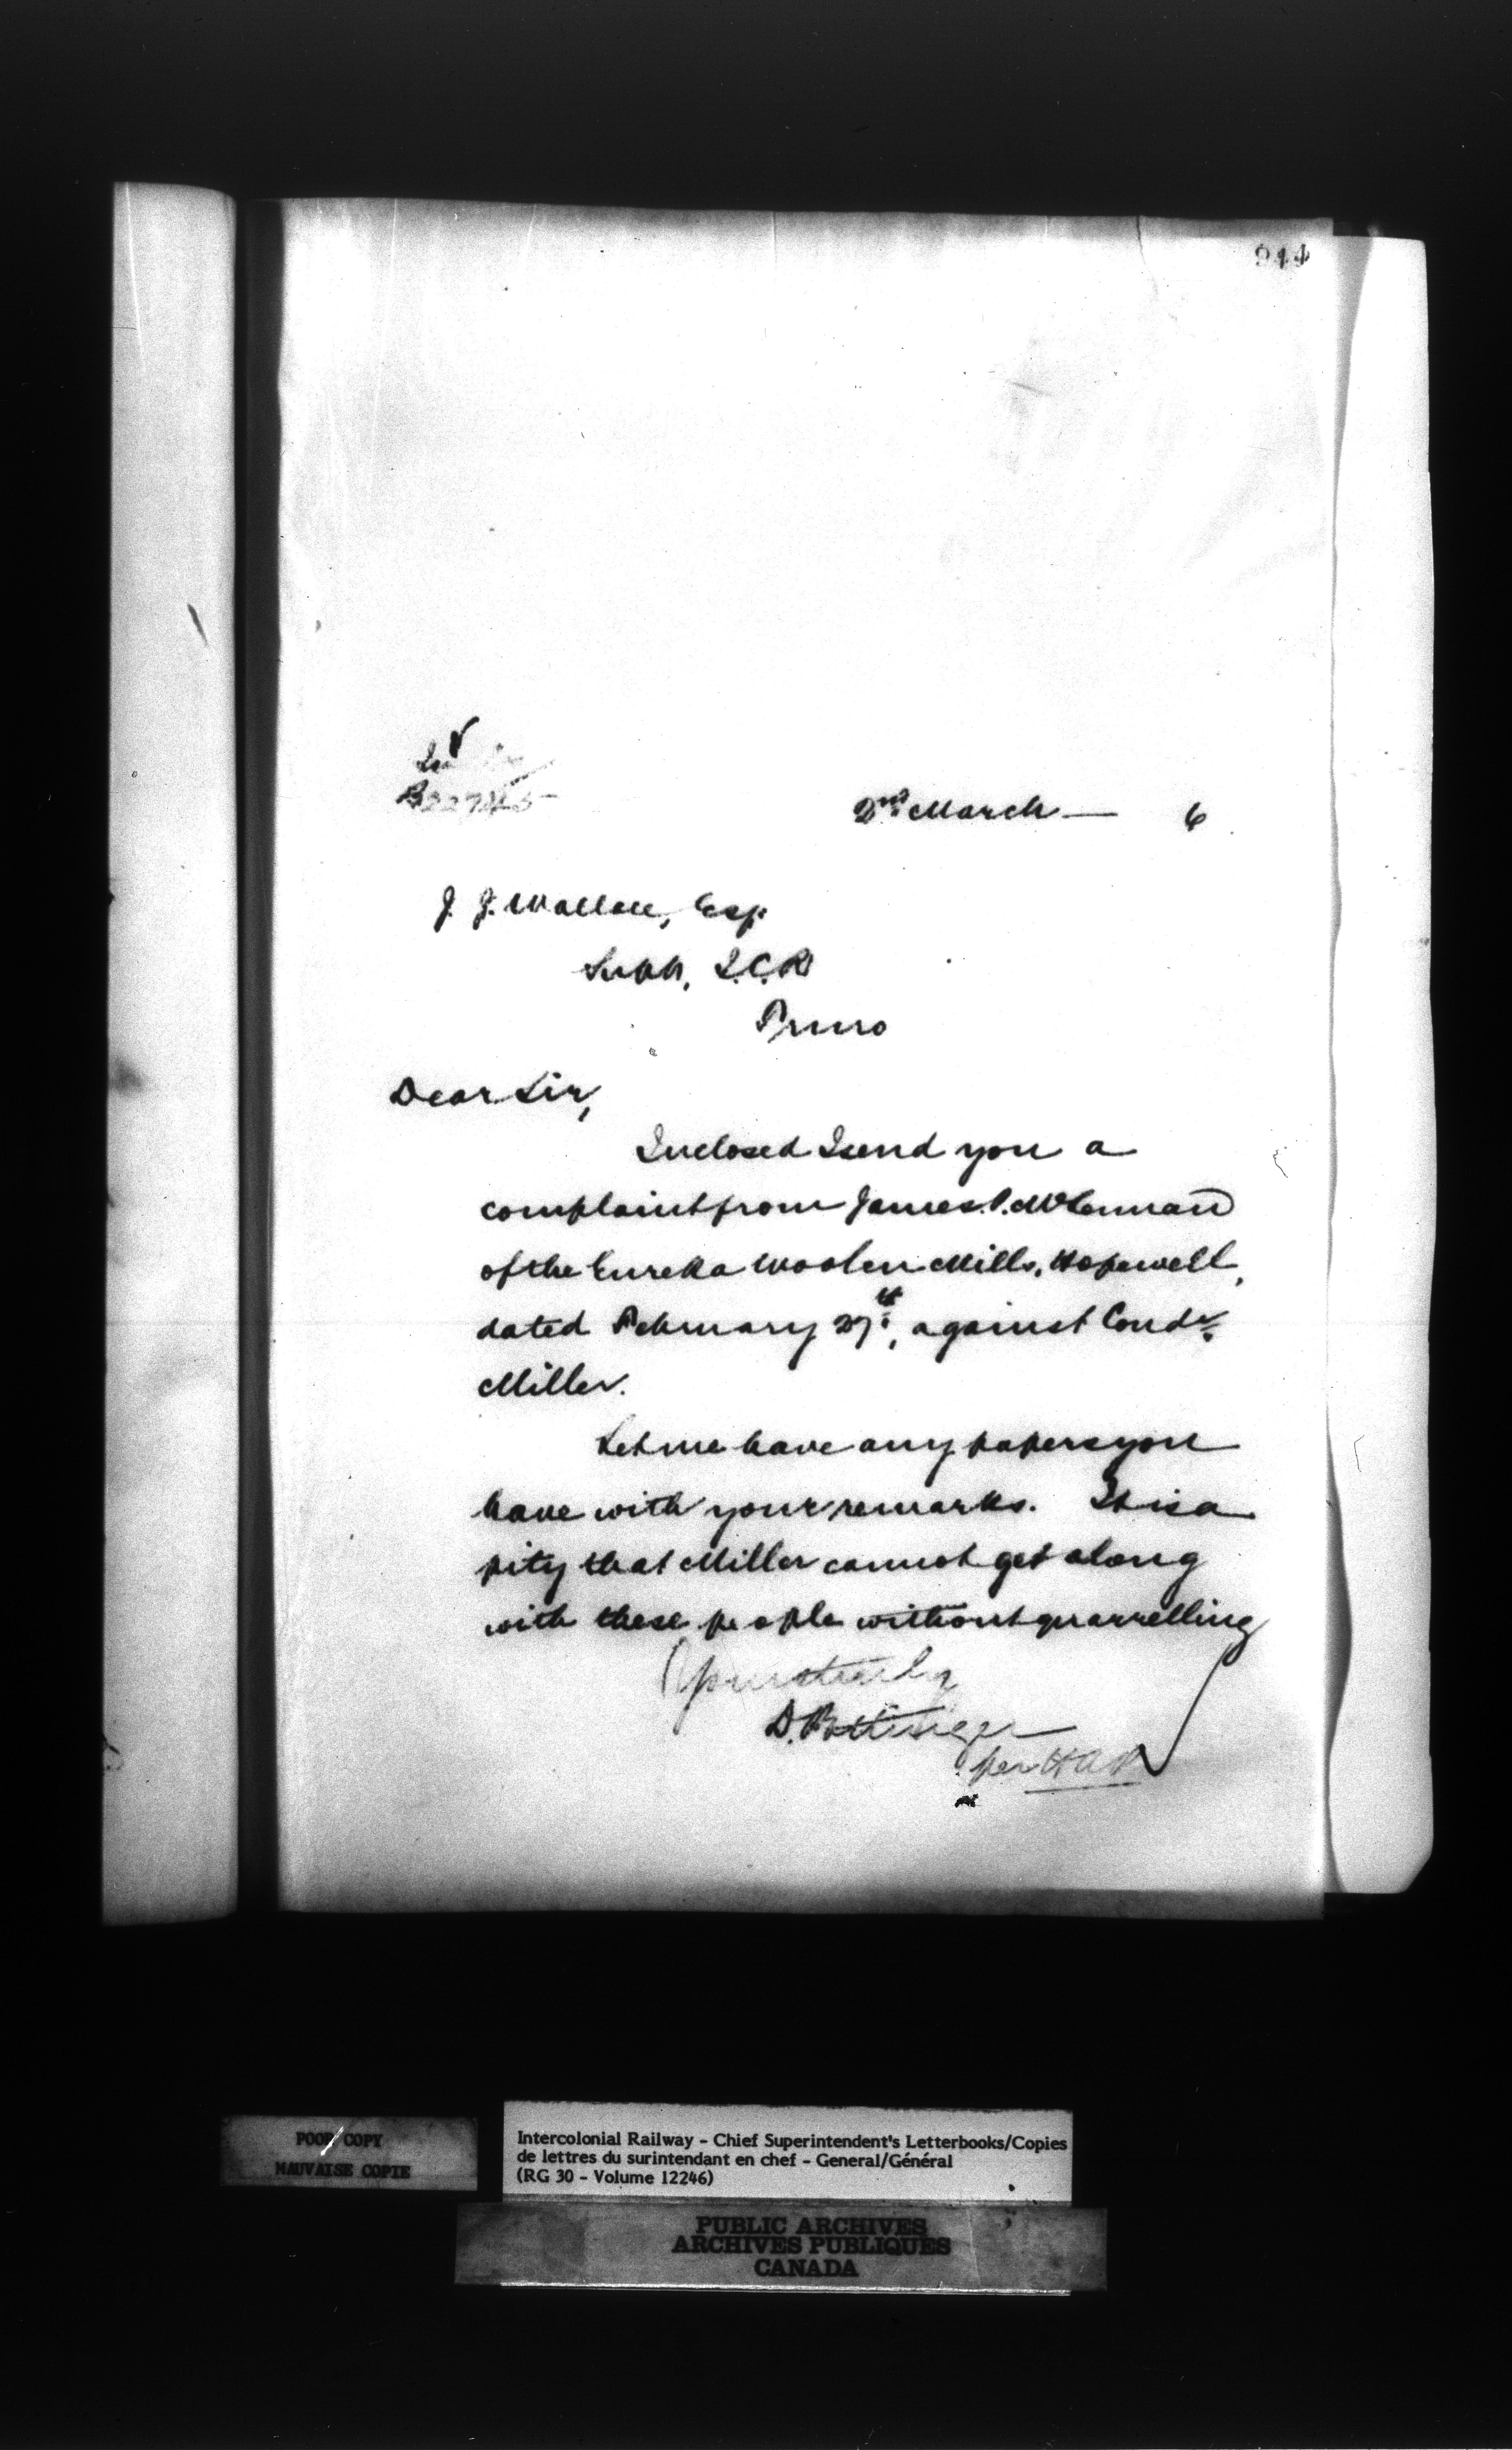 944
2nd March — 6
J. J. Wallace, Esq.
Supt, I.C.R
Truro
Dear Sir,
Inclosed I send you a
complaint from James P. McLennan
of the Eureka Woolen Mills, Hopewell,
dated February 27th, against Condr.
Miller.
Let me have any papers you
have with your remarks. It is a
pity that Miller cannot get along
with these people without quarrelling
Yours truly
D. Pottinger
per HAP
POOR COPY
MAUVAISE COPIE
Intercolonial Railway - Chief Superintendent's Letterbooks/Copies
de lettres du surintendant en chef - General/Général
(RG 30 - Volume 12246)
PUBLIC ARCHIVES
ARCHIVES PUBLIQUES
CANADA